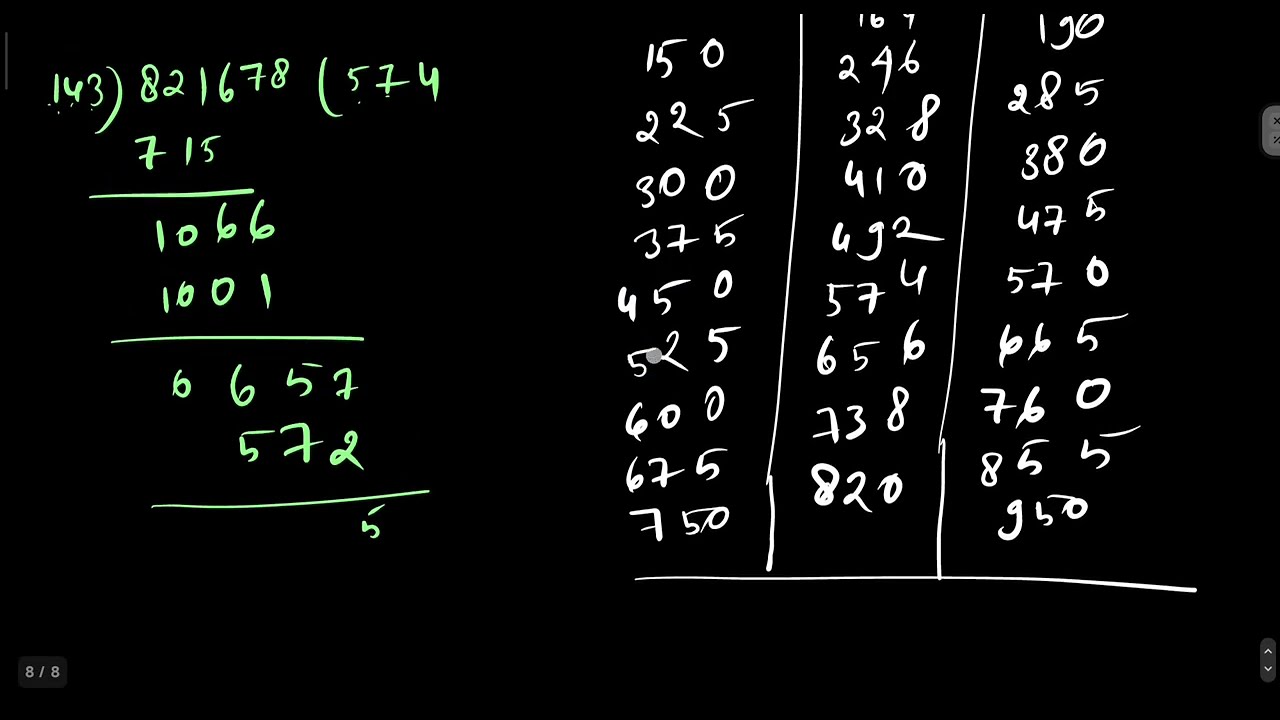 143) 821678 (574
715
1066
1001
0657
572
5
150
225
300
375
450
525
600
675
750
164
246
328
410
492
574
656
738
820
190
285
380
475
570
665
760
855
950
8 / 8